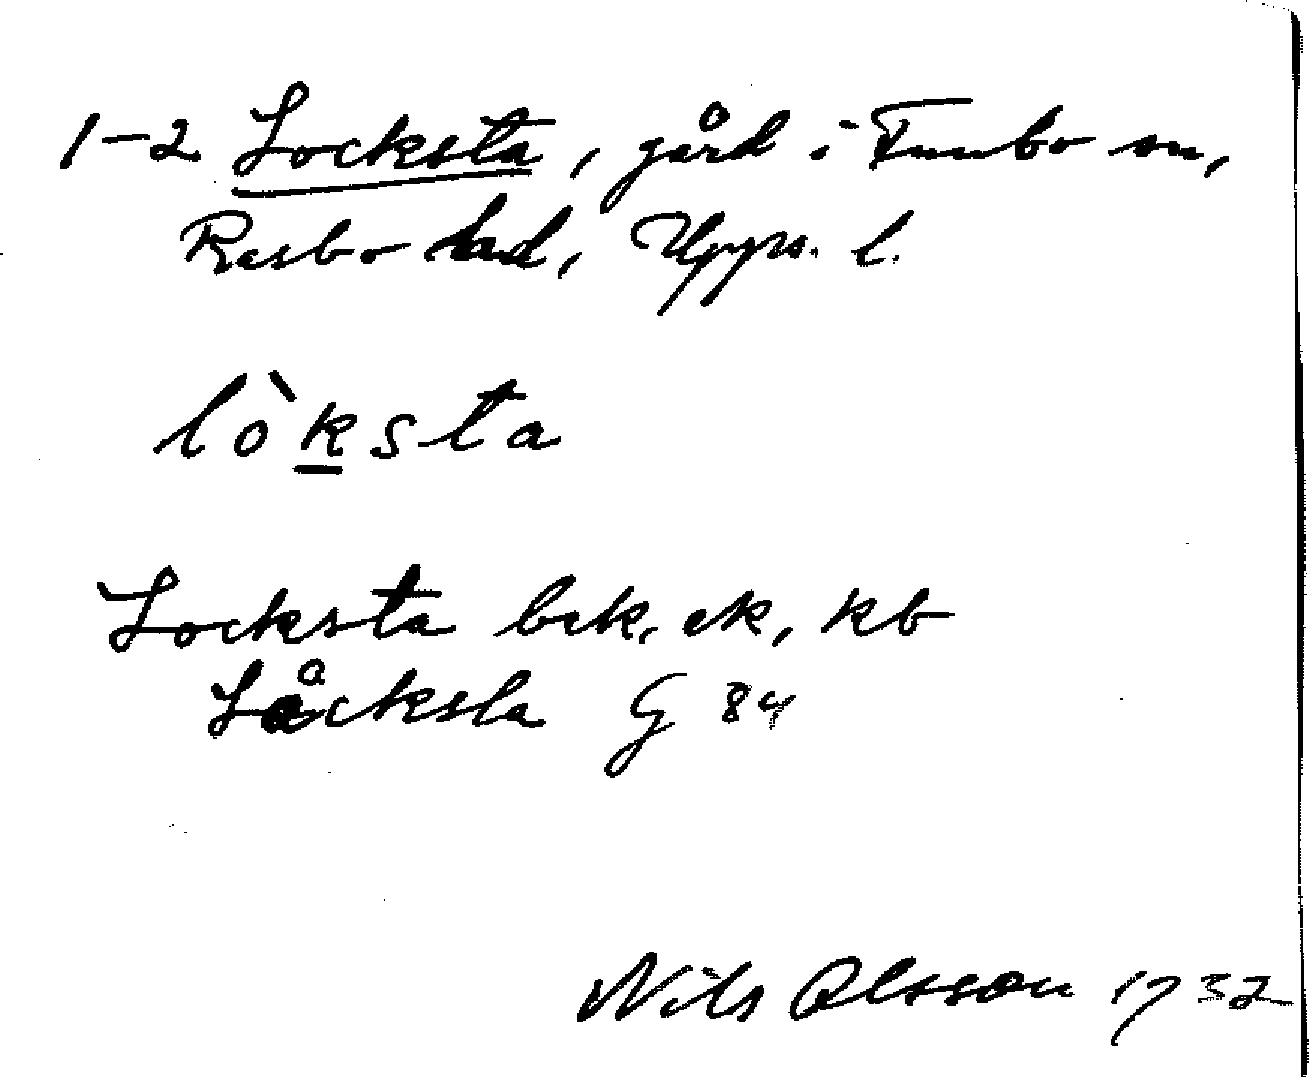 1-2 Locksta, gård i Funbo sn,
Rasbo hd, Upps. l.
lòksta
Locksta bek, ek, kb
Låcksta G 84
Nils Olsson 1932